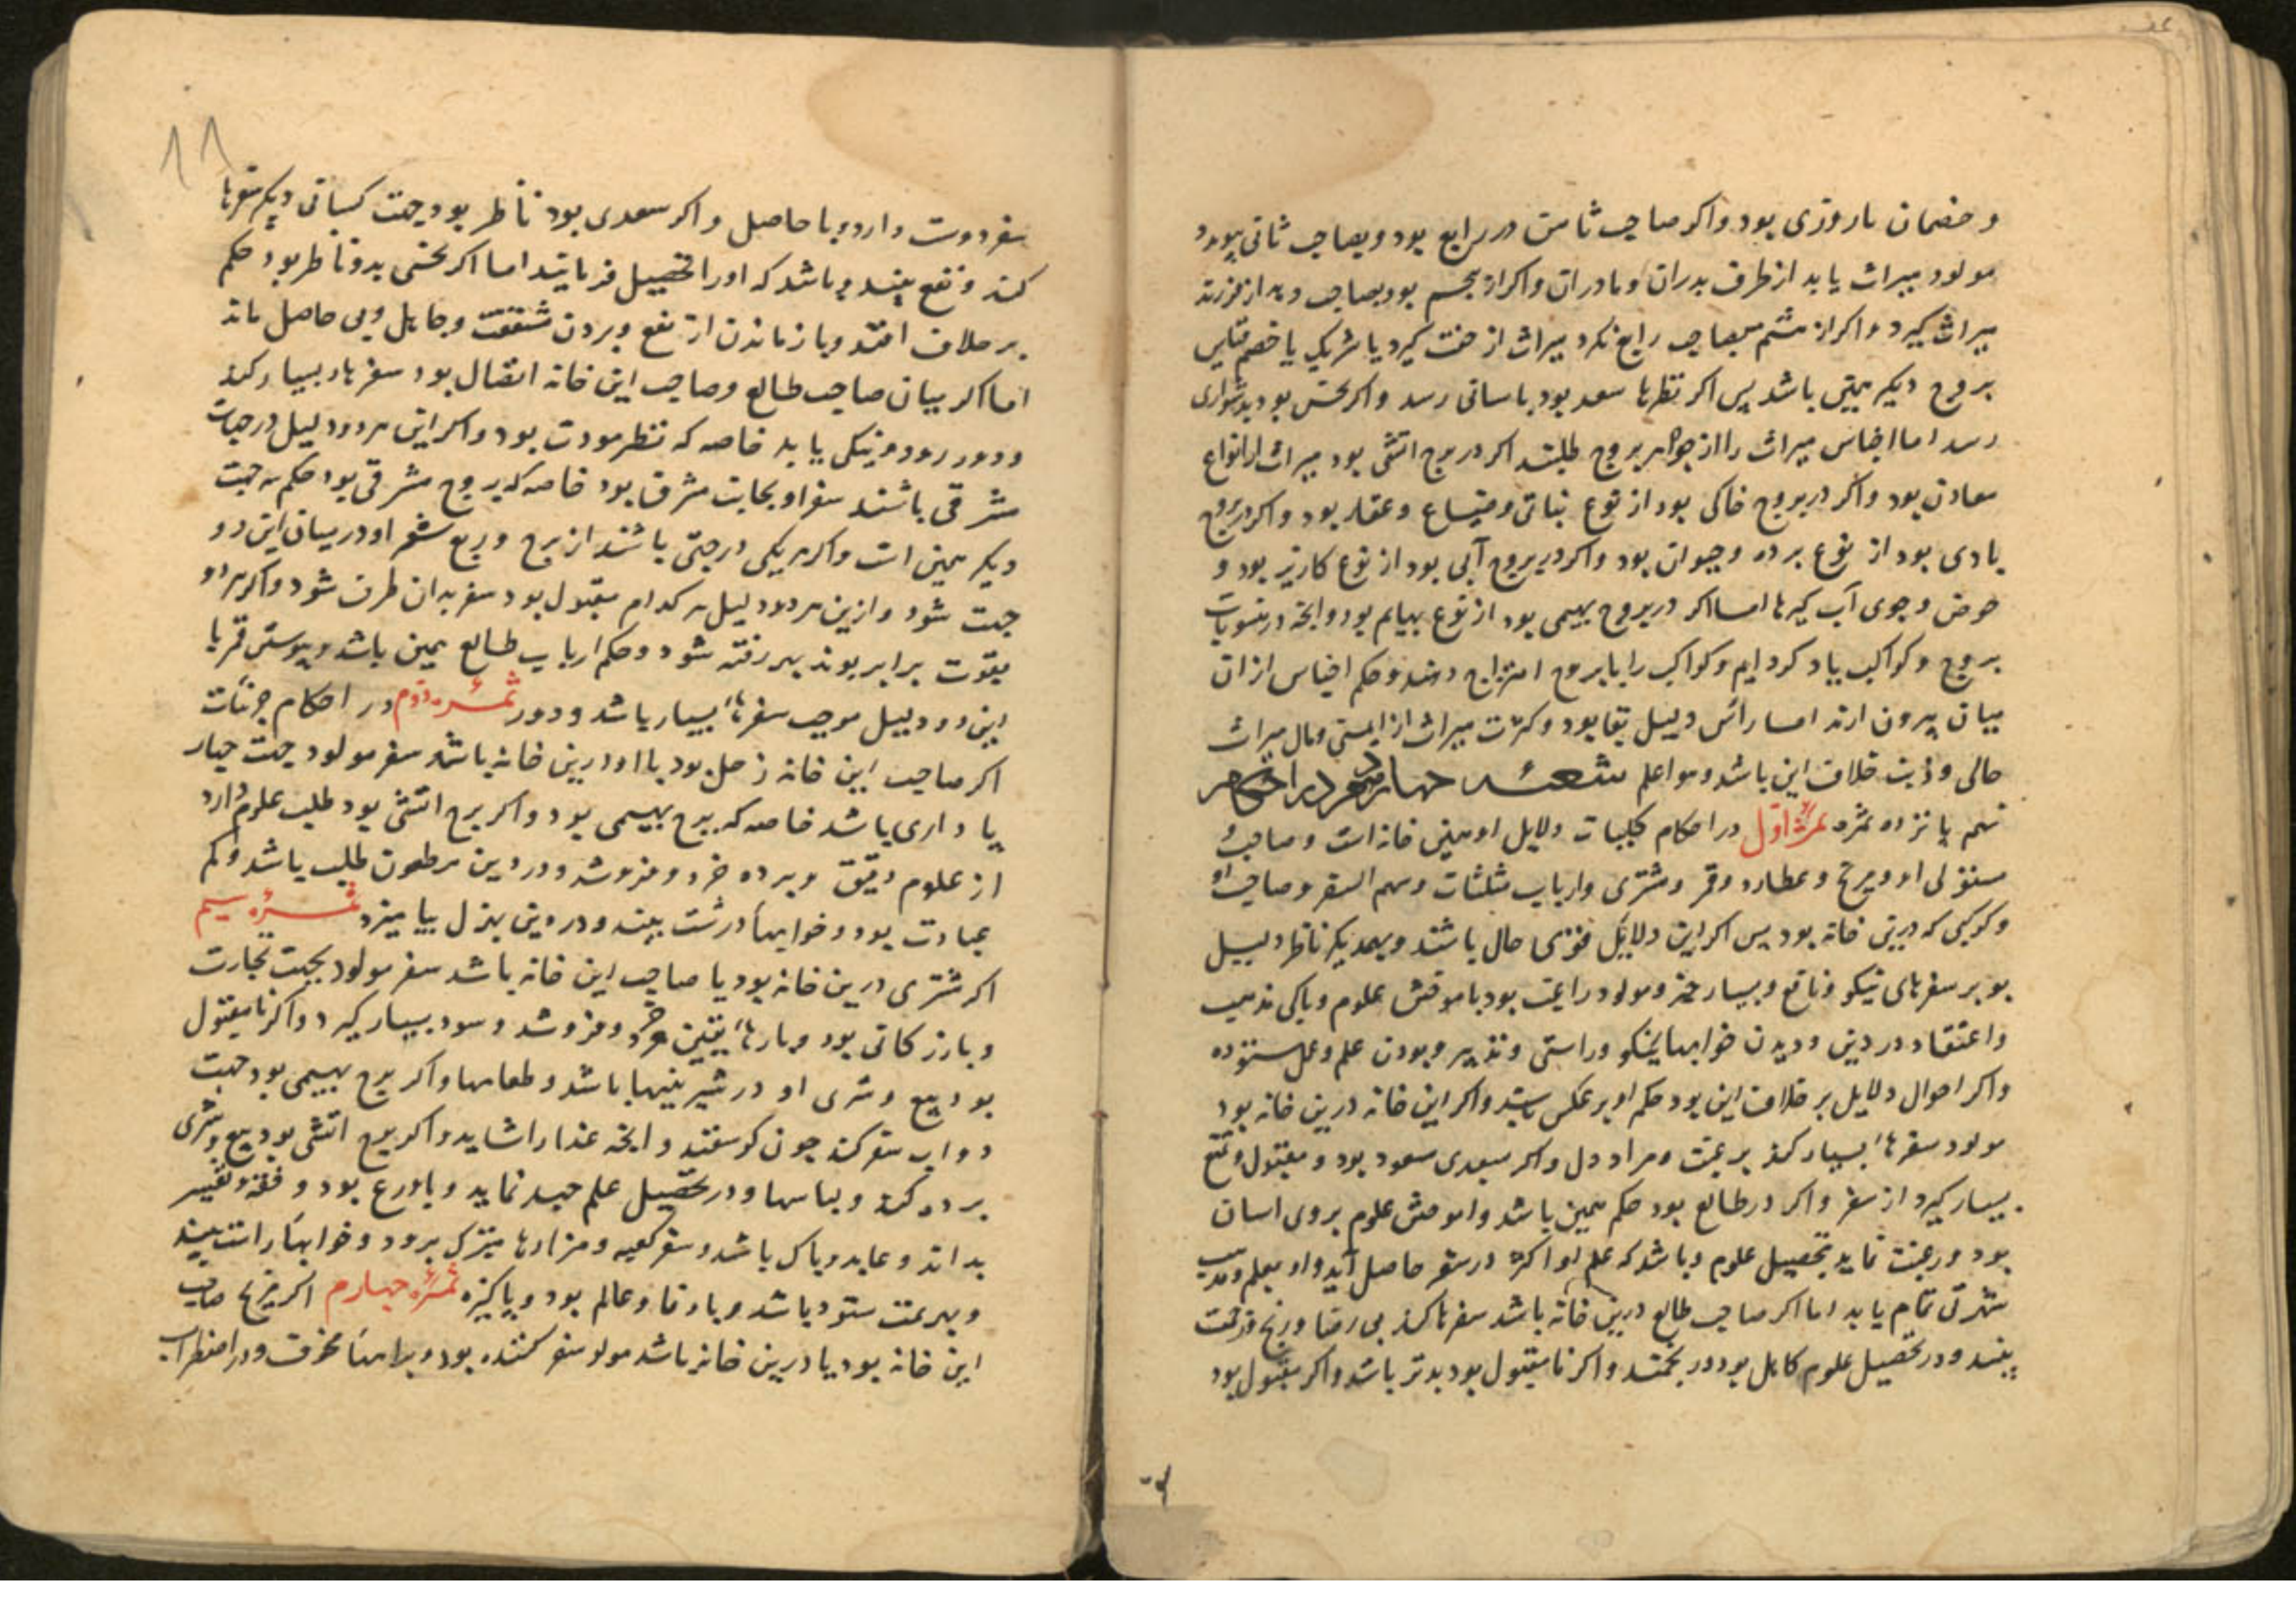 و خصمان باروزی بود و اکر صاحب ثامن در رابع بود و بصاحب ثانی پیوندد
مولود میراث یابد از طرف پدران و مادران و اکر از پنجم بود بصاحب دهد از فرزند
میراث گیرد و اکر از ششم بصاحب رابع نکرد میراث از خفت گیرد یا شریک یا خصم قیاس
بروج دیکر همین باشد پس اکر نظرها سعد بود باسانی رسد و اکر نحس بود بدشواری
رسد اما اجناس میراث را از جواهر بروج طلبند اکر در برج اتشی بود میراث از انواع
معادن بود و اکر در بروج خاکی بود از نوع نباتی و ضیاع و عقار بود و اکر در بروج
بادی بود از نوع برده و حیوان بود و اکر در بروج آبی بود از نوع کاریز بود و
حوض و جوی آب کیرها اما اکر در بروج بهیمی بود از نوع بهایم بود و انچه در منسوبات
بروج و کواکب یاد کرده ایم و کواکب را با بروج امتزاج دهند و حکم اجناس از ان
میان بیرون ارند اما رأس دلیل بقا بود و کثرت میراث از ایمنی و مال میراث
حالی و ذنب خلاف این باشد و هو اعلم شعبه چهاردهم در احکام
نهم پانزده ثمره ثمرهٔ اوّل در احکام کلیات دلایل او همین خانه است و صاحب
مستولی او و مریخ و عطارد و قمر و مشتری و ارباب مثلثات و سهم السفر و صاحب او
و کوکبی که درین خانه بود پس اکر این دلایل قوی حال باشند و بهمدیکر ناظر دلیل
بود بر سفرهای نیکو و نافع و بسیار خیر و مولود را رغبت بود باموختن علوم و پاکی مذهب
و اعتقاد در دین و دیدن خوابهای نیکو و راستی و تدبیر و بودن علم و عمل ستوده
و اکر احوال دلایل بر خلاف این بود حکم او بر عکس باشد و اکر این خانه درین خانه بود
مولود سفرها بسیار کند برغبت و مراد دل و اکر سعدی مسعود بود و مقبول و نفع
بسیار کیرد از سفر و اکر در طالع بود حکم همین باشد و اموختن علوم بروی اسان
بود و رغبت نماید تحصیل علوم و باشد که علم او اکثر در سفر حاصل آید و او بعلم و مذهب
شهرتی تمام یابد اما اکر صاحب طالع درین خانه باشد سفرها کند بی رضا و رنج و زحمت
بیند و در تحصیل علوم کاهل بود و اکر نامقبول بود بدتر باشد و اکر مقبول بود
۱۱
سفر دوست دارد و با حاصل و اکر سعدی بود ناظر بود جهت کسانی دیکر سفرها
کند و نفع بیند و باشد که او را تحصیل فرمایند اما اکر نحسی بدو ناظر بود حکم
بر خلاف افتد و باز ماندن از نفع و بردن مشقت و جاهل و بی حاصل ماند
اما اکر میان صاحب طالع و صاحب این خانه اتصال بود سفرها بسیار کند
و دور رود و نیکی یابد خاصه که نظر مودت بود و اکر این هر دو دلیل در جهات
شرقی باشند سفر او بجانب مشرق بود خاصه که بروج مشرقی بود حکم سه جهت
دیکر همین است و اکر هر یکی در جهتی باشند از برج و ربع سفر او در میان این دو
جهت شود و ازین هر دو دلیل هر کدام مقبول بود سفر بدان طرف شود و اکر هر دو
بقوت برابر بوند بهر رفته شود و حکم ارباب طالع همین باشد و پیوستن قمر با
این دو دلیل موجب سفرها بسیار باشد و دور ثمرهٔ دوم در احکام جزئیات
اکر صاحب این خانه زحل بود یا او درین خانه باشد سفر مولود جهت
یا داری باشد خاصه که برج بهیمی بود و اکر برج اتشی بود طلب علوم دارد
از علوم دقیق و برده خرد و فروشد و در دین مطعون طلب باشد و کم
عبادت بود و خوابها درشت بیند و در دین بهزل بیامیزد ثمرهٔ سیم
اکر مشتری درین خانه بود یا صاحب این خانه باشد سفر مولود بجهت تجارت
و بازرکانی بود و بارها بیقین خرد و فروشد و سود بسیار کیرد و اکر نامقبول
بود بیع و شری او در شیرینیها باشد و طعامها و اکر برج بهیمی بود جهت
دواب سفر کند چون کوسفند و انچه غذا را شاید و اکر برج اتشی بود بیع و شری
برده کند و لباسها و در تحصیل علم جهد نماید و باورع بود و فقه و تفسیر
بداند و عابد و پاک باشد و سفر کعبه و مزارها متبرک برود و خوابها راست بیند
و بهر عمت ستوده باشد و باوفا و عالم بود و پاکیزه ثمرهٔ چهارم اکر مریخ صاحب
این خانه بود یا درین خانه باشد مولود سفر کننده بود و براهها مخوف و در اضطراب